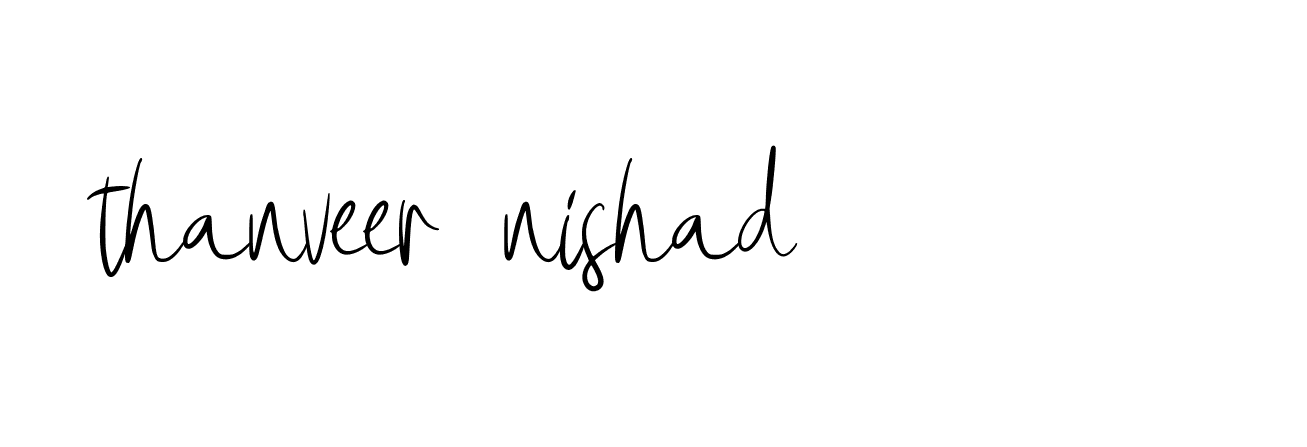 thanveer nishad